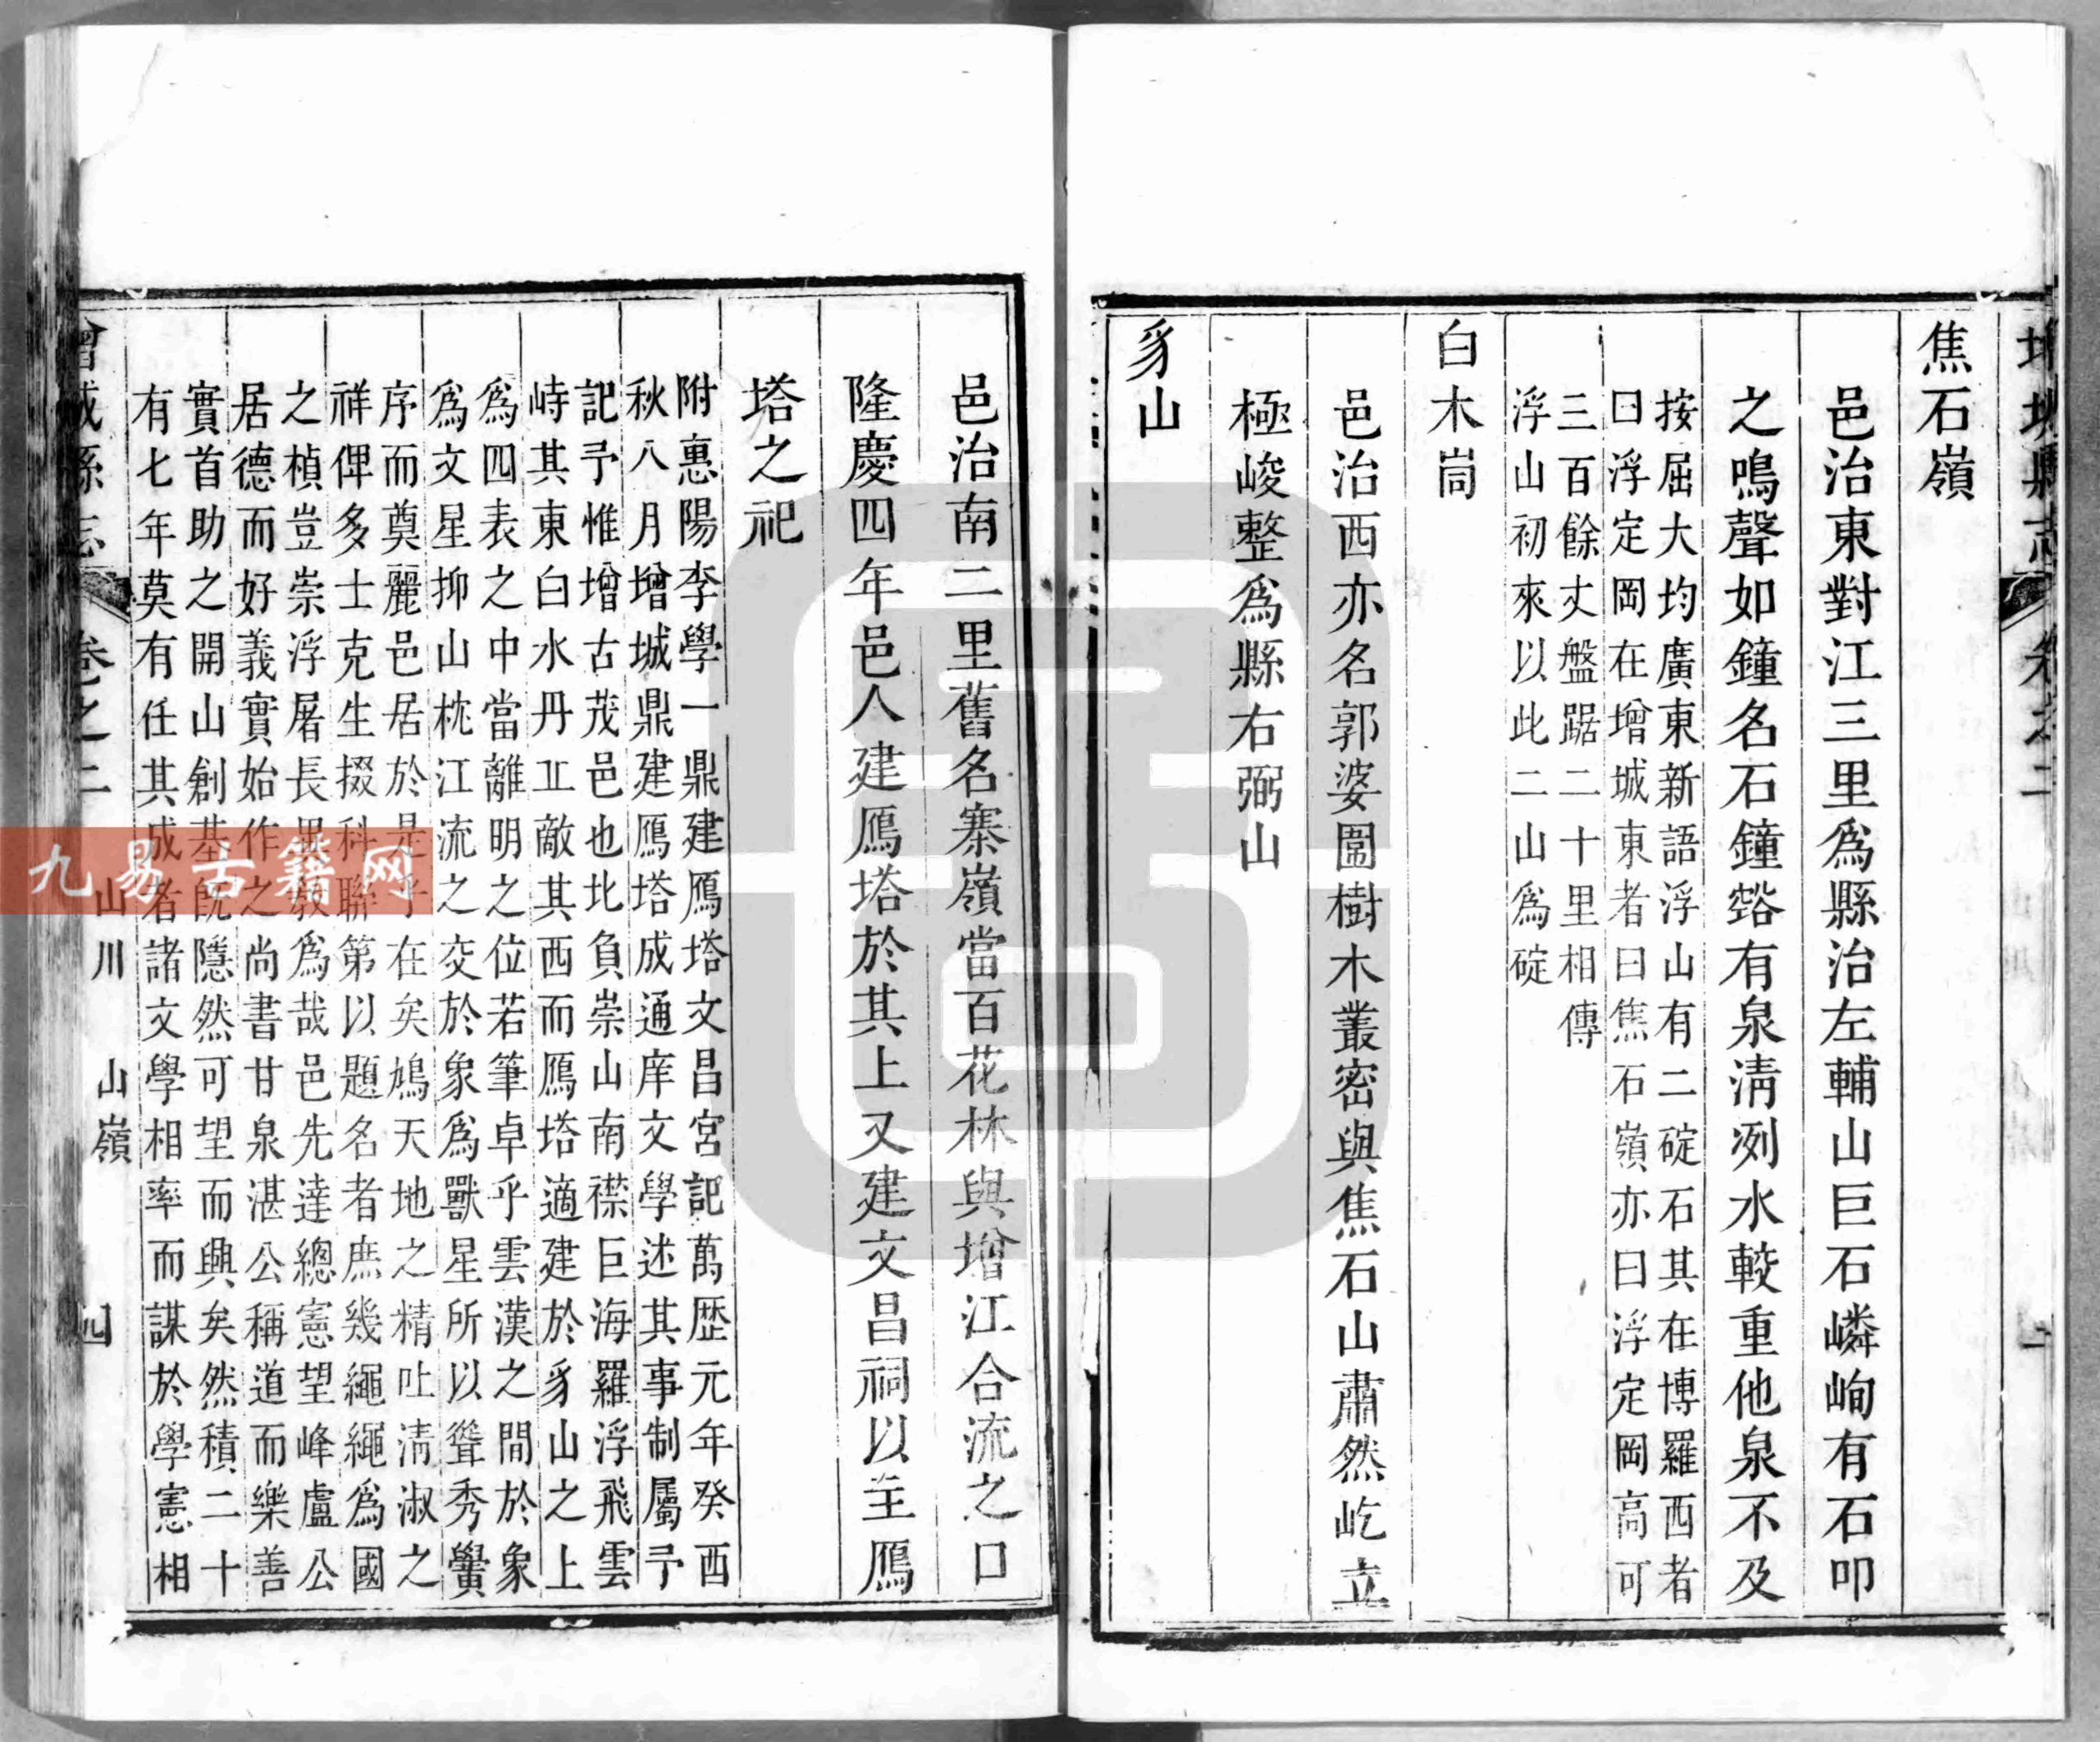 焦石嶺
邑治東對江三里爲縣治左輔山巨石嶙峋有石叩
之鳴聲如鐘名石鐘谿有泉淸冽水較重他泉不及
按屈大均廣東新語浮山有二碇石其在博羅西者
曰浮定岡在增城東者曰焦石嶺亦曰浮定岡高可
三百餘丈盤踞二十里相傳
浮山初來以此二山爲碇
白木崗
邑治西亦名郭婆圖樹木叢密與焦石山肅然屹立
極峻整爲縣右弼山
豸山
邑治南二里舊名寨嶺當百花林與增江合流之口
隆慶四年邑人建鴈塔於其上又建文昌祠以主鴈
塔之祀
附惠陽李學一鼎建鴈塔文昌宮記萬歷元年癸酉
秋八月增城鼎建鴈塔成通庠文學述其事制屬予
記予惟增古茂邑也北負崇山南襟巨海羅浮飛雲
峙其東白水丹丘敵其西而鴈塔適建於豸山之上
爲四表之中當離明之位若筆卓乎雲漢之間於象
爲文星抑山枕江流之交於象爲獸星所以聳秀黌
序而奠麗邑居於是乎在矣鳩天地之精吐淸淑之
祥俾多士克生掇科聯第以題名者庶幾繩繩爲國
之楨豈崇浮屠長異敎爲哉邑先達總憲望峰盧公
居德而好義實始作之尚書甘泉湛公稱道而樂善
實首助之開山創基旣隱然可望而興矣然積二十
有七年莫有任其成者諸文學相率而謀於學憲相
增城縣志 卷之二 山川 山嶺 四
九易古籍网